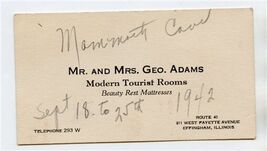 Mammoth Cave
MR. AND MRS. GEO. ADAMS
Modern Tourist Rooms
Beauty Rest Mattresses
Sept 18. to 25th 1942
TELEPHONE 293 W
ROUTE 41
911 WEST FAYETTE AVENUE
EFFINGHAM, ILLINOIS